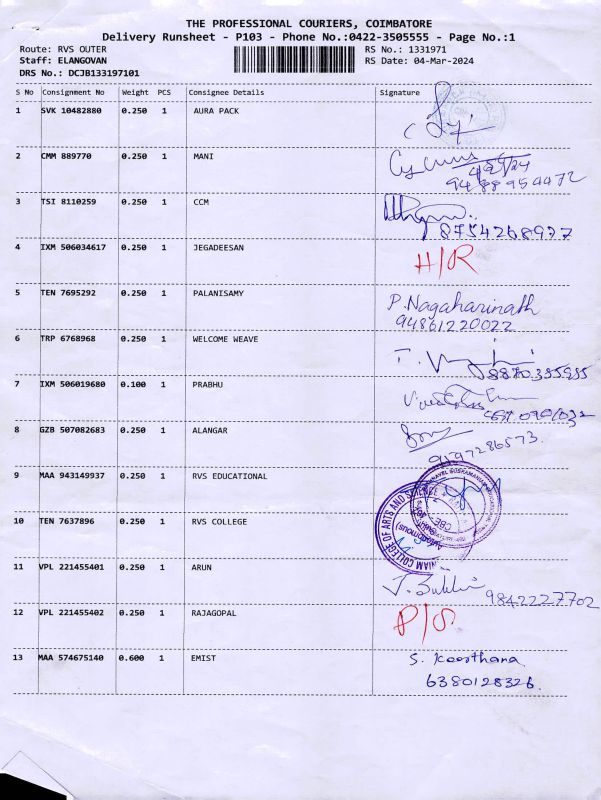 THE PROFESSIONAL COURIERS, COIMBATORE
Delivery Runsheet - P103 - Phone No.:0422-3505555 - Page No.:1
Route: RVS OUTER RS No.: 1331971
Staff: ELANGOVAN RS Date: 04-Mar-2024
DRS No.: DCJB133197101
S No Consignment No Weight PCS Consignee Details Signature
1 SVK 10482880 0.250 1 AURA PACK
2 CMM 889770 0.250 1 MANI
9488954472
3 TSI 8110259 0.250 1 CCM
8754268977
4 IXM 506034617 0.250 1 JEGADEESAN H/R
5 TEN 7695292 0.250 1 PALANISAMY P. Nagaharinath
94861220022
6 TRP 6768968 0.250 1 WELCOME WEAVE
7 IXM 506019680 0.100 1 PRABHU
8 GZB 507082683 0.250 1 ALANGAR
9197286573
9 MAA 943149937 0.250 1 RVS EDUCATIONAL
10 TEN 7637896 0.250 1 RVS COLLEGE
COLLEGE OF ARTS AND SCIENCE
(Autonomous)
11 VPL 221455401 0.250 1 ARUN
9842227702
12 VPL 221455402 0.250 1 RAJAGOPAL P/S
13 MAA 574675140 0.600 1 EMIST S. Keerthana
6380128326